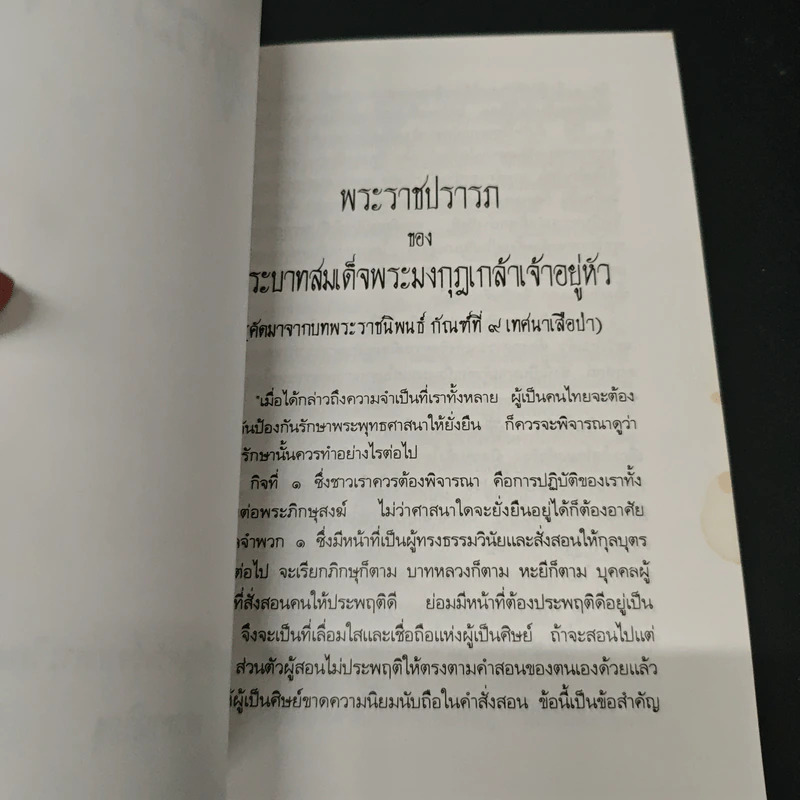 พระราชปรารภ
ของ
ระบาทสมเด็จพระมงกุฎเกล้าเจ้าอยู่หัว
(คัดมาจากบทพระราชนิพนธ์ กัณฑ์ที่ ๙ เทศนาเสือป่า)
"เมื่อได้กล่าวถึงความจำเป็นที่เราทั้งหลาย ผู้เป็นคนไทยจะต้อง
ันป้องกันรักษาพระพุทธศาสนาให้ยั่งยืน ก็ควรจะพิจารณาดูว่า
รักษานั้นควรทำอย่างไรต่อไป
กิจที่ ๑ ซึ่งชาวเราควรต้องพิจารณา คือการปฏิบัติของเราทั้ง
ต่อพระภิกษุสงฆ์ ไม่ว่าศาสนาใดจะยั่งยืนอยู่ได้ก็ต้องอาศัย
จำพวก ๑ ซึ่งมีหน้าที่เป็นผู้ทรงธรรมวินัยและสั่งสอนให้กุลบุตร
ต่อไป จะเรียกภิกษุก็ตาม บาทหลวงก็ตาม หะยีก็ตาม บุคคลผู้
ที่สั่งสอนคนให้ประพฤติดี ย่อมมีหน้าที่ต้องประพฤติดีอยู่เป็น
จึงจะเป็นที่เลื่อมใสและเชื่อถือแห่งผู้เป็นศิษย์ ถ้าจะสอนไปแต่
ส่วนตัวผู้สอนไม่ประพฤติให้ตรงตามคำสอนของตนเองด้วยแล้ว
ผู้เป็นศิษย์ขาดความนิยมนับถือในคำสั่งสอน ข้อนี้เป็นข้อสำคัญ